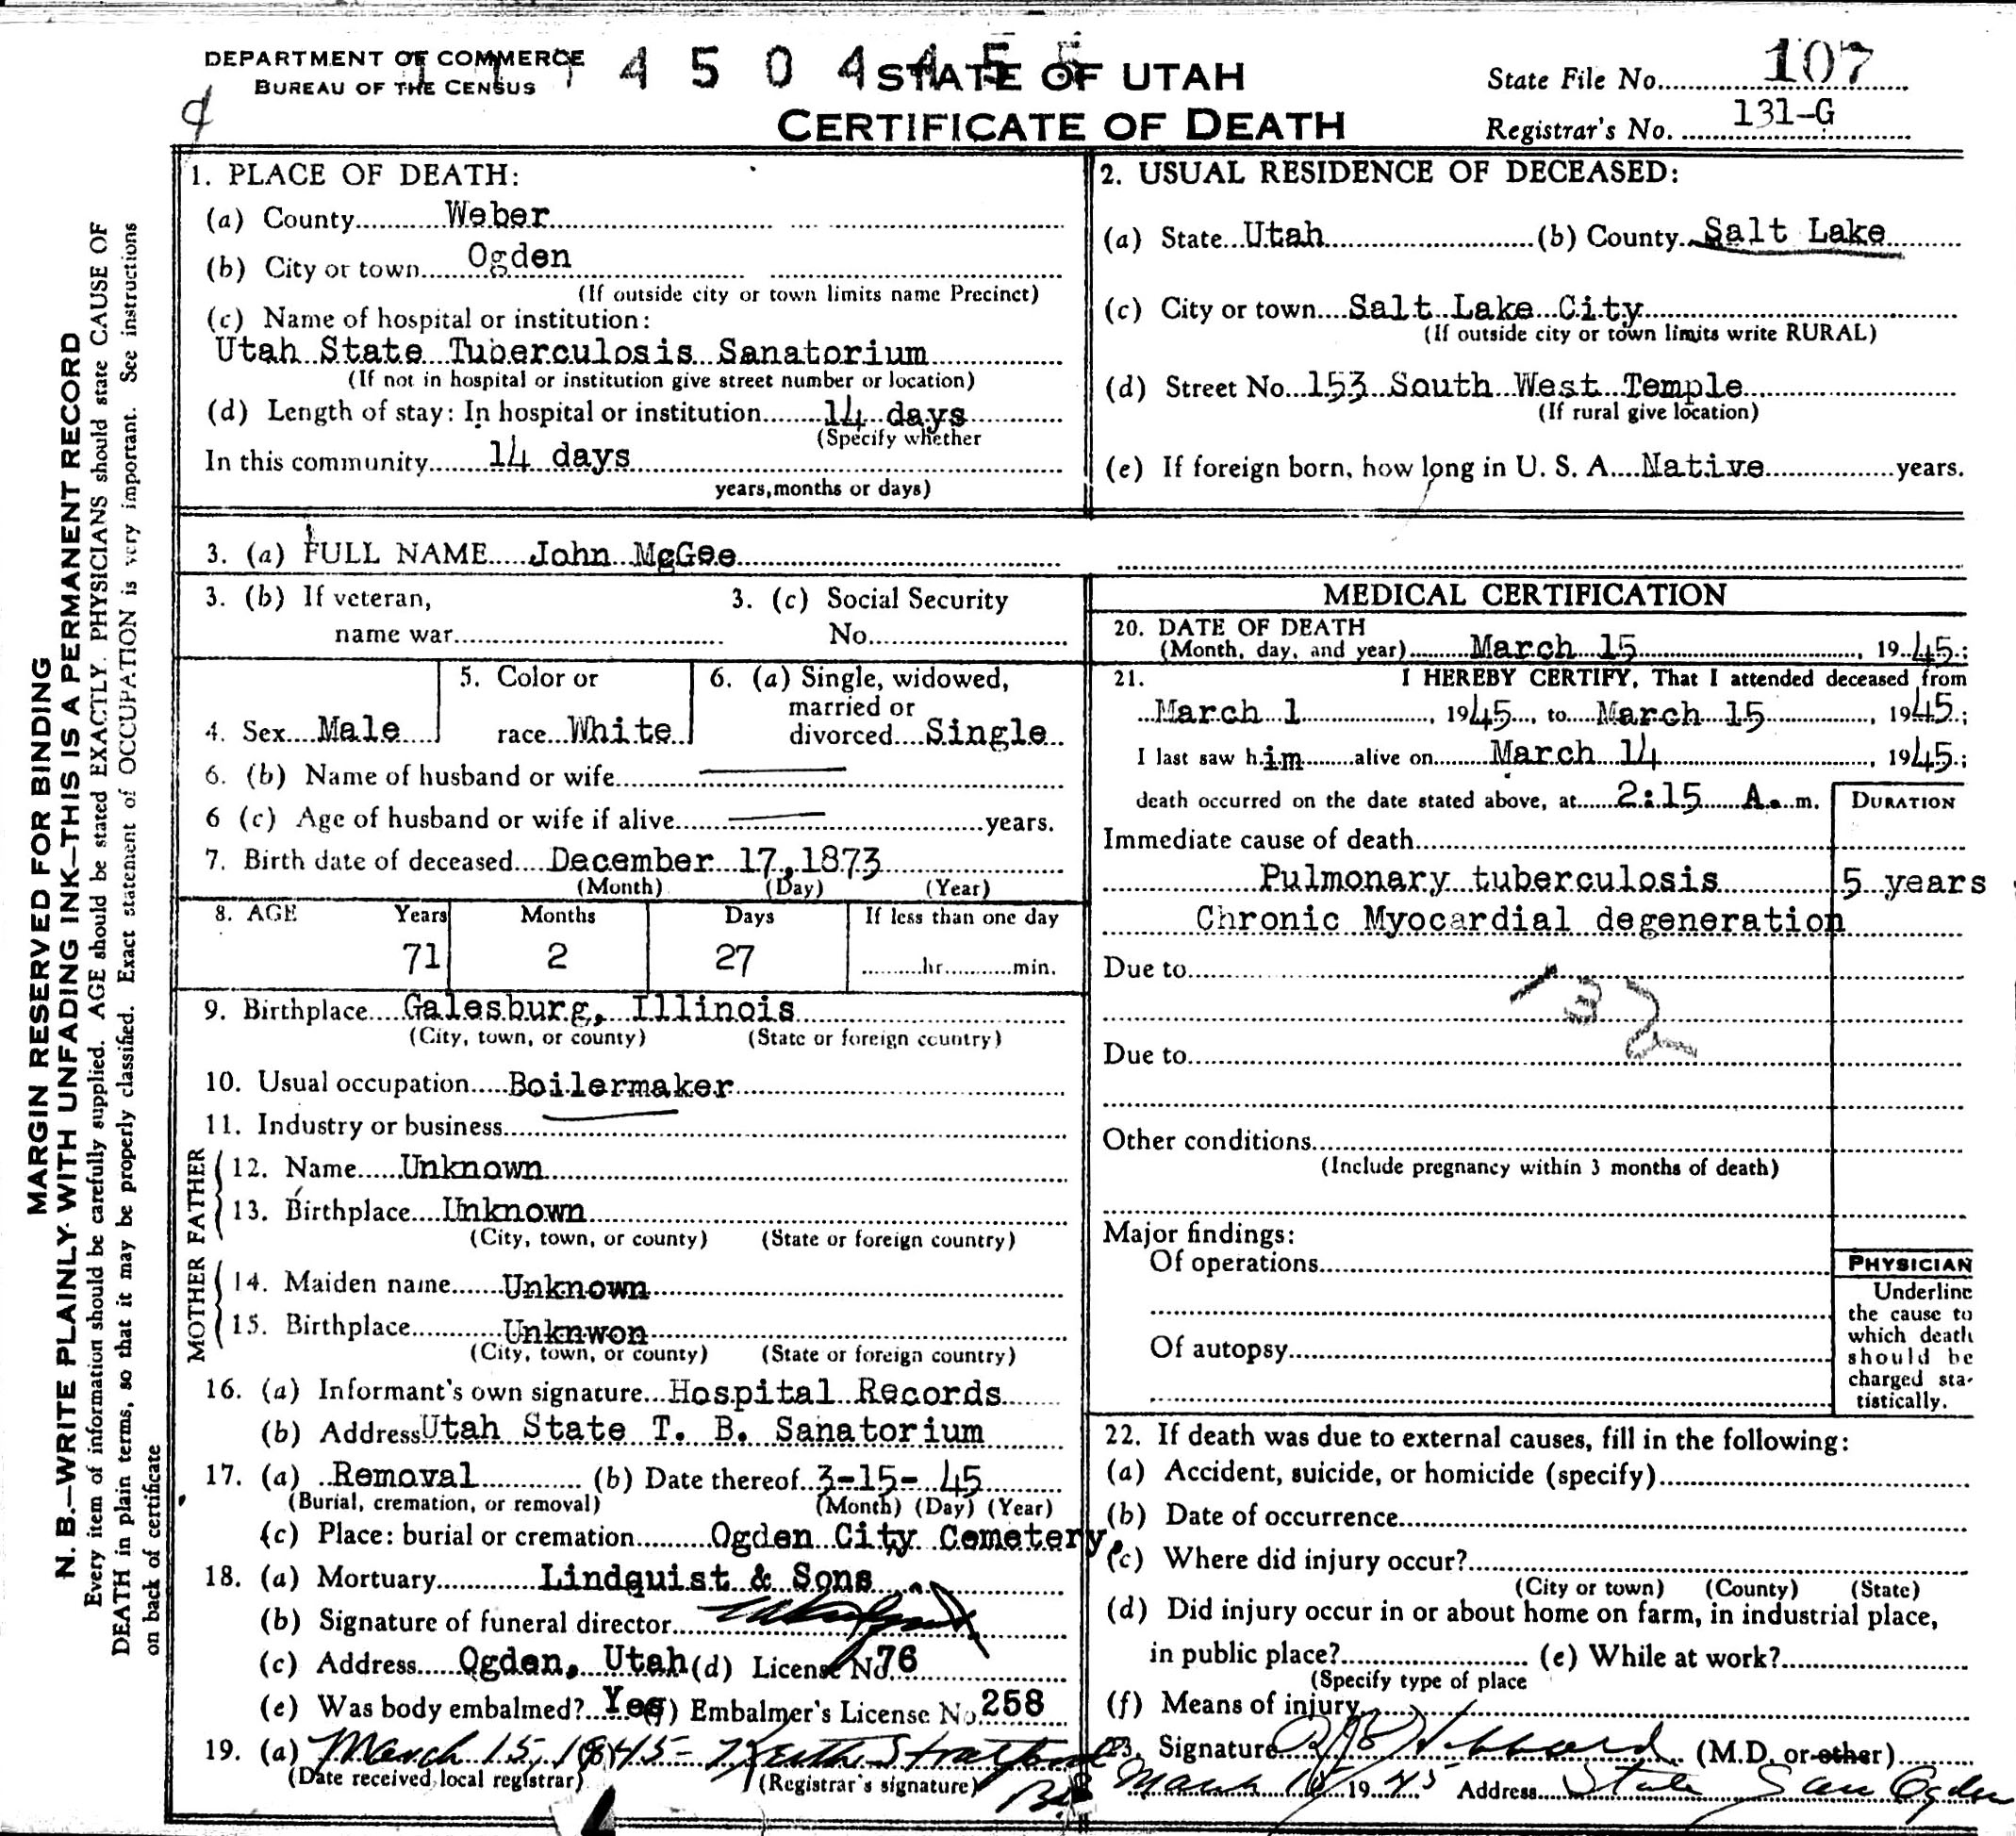 DEPARTMENT OF COMMERCE
BUREAU OF THE CENSUS
4 5 0 4 4 5 5
STATE OF UTAH
CERTIFICATE OF DEATH
State File No. 107
Registrar's No. 131-G
MARGIN RESERVED FOR BINDING
N. B.—WRITE PLAINLY WITH UNFADING INK—THIS IS A PERMANENT RECORD
Every item of information should be carefully supplied. AGE should be stated EXACTLY. PHYSICIANS should state CAUSE OF
DEATH in plain terms, so that it may be properly classified. Exact statement of OCCUPATION is very important. See instructions
on back of certificate
1. PLACE OF DEATH:
(a) County Weber
(b) City or town Ogden
(If outside city or town limits name Precinct)
(c) Name of hospital or institution:
Utah State Tuberculosis Sanatorium
(If not in hospital or institution give street number or location)
(d) Length of stay: In hospital or institution 14 days
(Specify whether
In this community 14 days
years, months or days)
2. USUAL RESIDENCE OF DECEASED:
(a) State Utah (b) County Salt Lake
(c) City or town Salt Lake City
(If outside city or town limits write RURAL)
(d) Street No. 153 South West Temple
(If rural give location)
(e) If foreign born, how long in U. S. A. Native years.
3. (a) FULL NAME John McGee
3. (b) If veteran,
name war
3. (c) Social Security
No.
4. Sex Male
5. Color or
race White
6. (a) Single, widowed,
married or
divorced Single
6. (b) Name of husband or wife
6 (c) Age of husband or wife if alive years.
7. Birth date of deceased December 17, 1873
(Month) (Day) (Year)
8. AGE Years Months Days If less than one day
71 2 27 hr. min.
9. Birthplace Galesburg, Illinois
(City, town, or county) (State or foreign country)
10. Usual occupation Boilermaker
11. Industry or business
FATHER
12. Name Unknown
13. Birthplace Unknown
(City, town, or county) (State or foreign country)
MOTHER
14. Maiden name Unknown
15. Birthplace Unknwon
(City, town, or county) (State or foreign country)
16. (a) Informant's own signature Hospital Records
(b) Address Utah State T. B. Sanatorium
17. (a) Removal (b) Date thereof 3-15- 45
(Burial, cremation, or removal) (Month) (Day) (Year)
(c) Place: burial or cremation Ogden City Cemetery.
18. (a) Mortuary Lindquist & Sons
(b) Signature of funeral director
(c) Address Ogden, Utah (d) License No. 76
(e) Was body embalmed? Yes (f) Embalmer's License No. 258
19. (a) March 15, 1945 - Keith Stratford
(Date received local registrar) (Registrar's signature)
MEDICAL CERTIFICATION
20. DATE OF DEATH
(Month, day, and year) March 15, 1945;
21. I HEREBY CERTIFY, That I attended deceased from
March 1, 1945, to March 15, 1945;
I last saw him alive on March 14, 1945;
death occurred on the date stated above, at 2:15 A. m.
DURATION
Immediate cause of death
Pulmonary tuberculosis 5 years
Chronic Myocardial degeneration
Due to
132
Due to
Other conditions
(Include pregnancy within 3 months of death)
Major findings:
Of operations
Of autopsy
PHYSICIAN
Underline
the cause to
which death
should be
charged sta-
tistically.
22. If death was due to external causes, fill in the following:
(a) Accident, suicide, or homicide (specify)
(b) Date of occurrence
(c) Where did injury occur?
(City or town) (County) (State)
(d) Did injury occur in or about home on farm, in industrial place,
in public place? (e) While at work?
(Specify type of place
(f) Means of injury
23. Signature Hibbard (M.D. or other)
March 15 1945 Address State San Ogden